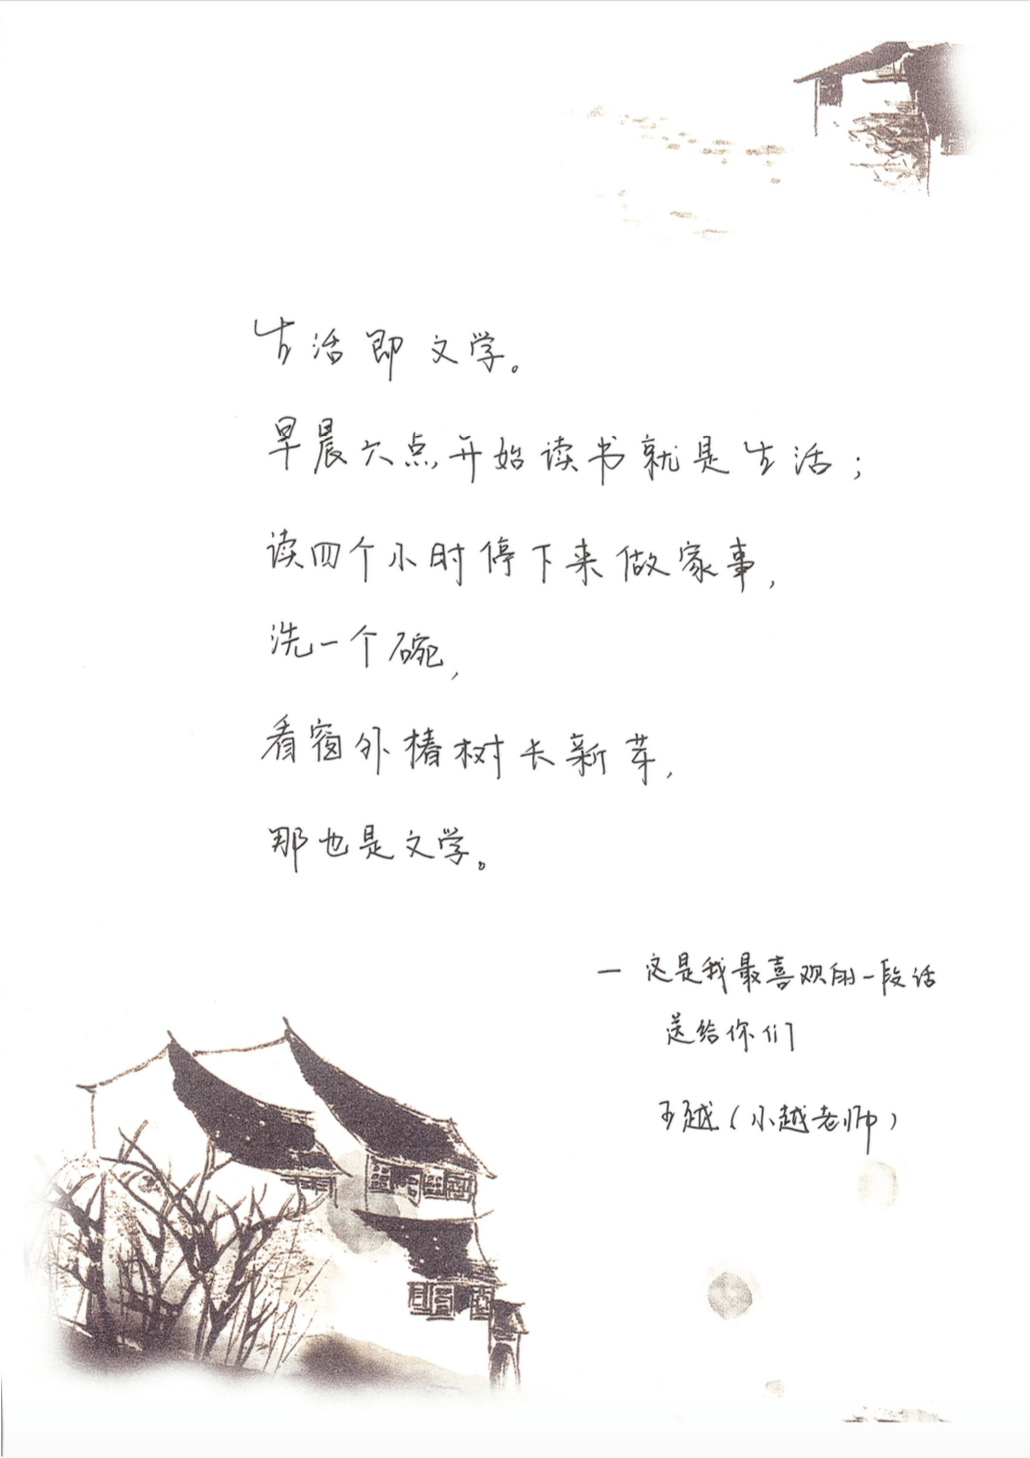 生活即文学。
早晨六点开始读书就是生活；
读四个小时停下来做家事，
洗一个碗，
看窗外椿树长新芽，
那也是文学。
— 这是我最喜欢的一段话
送给你们
王越（小越老师）